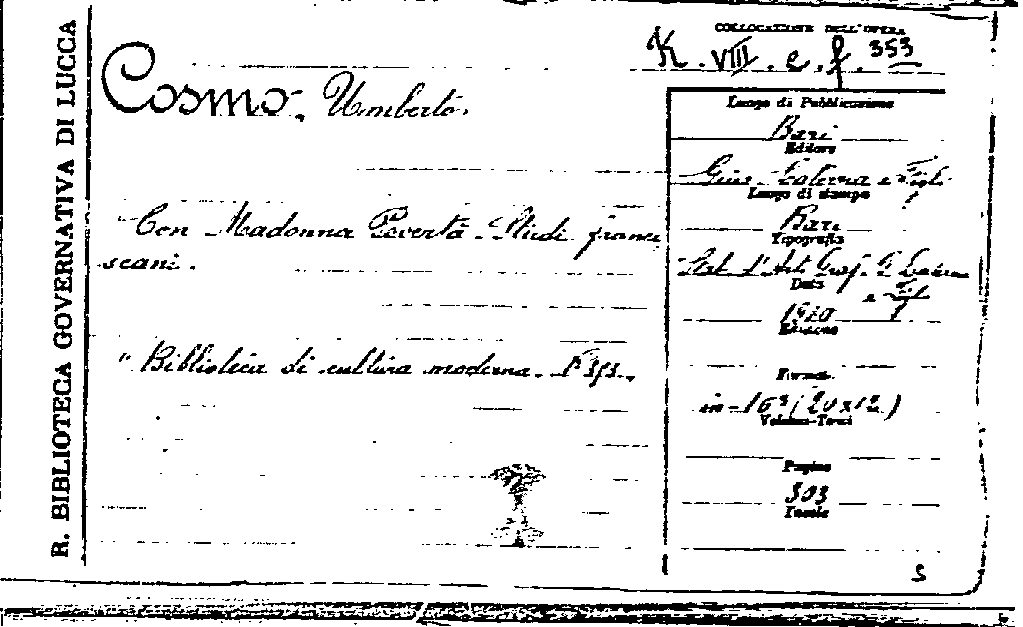 R. BIBLIOTECA GOVERNATIVA DI LUCCA
COLLOCAZIONE DELL'OPERA
K. VIII. e. f. 353
Cosmo. Umberto.
Con Madonna Povertà. Studi france
scani.
"Biblioteca di cultura moderna.
Luogo di Pubblicazione
Bari
Editore
Gius. Laterza e Figli
Luogo di stampa
Bari
Tipografia
Stab. d'Arti Graf. G. Laterza
e Figli
Data
1920
Edizione
Formato
in-16° (20x12)
Volumi-Tomi
Pagine
303
Tavole
S